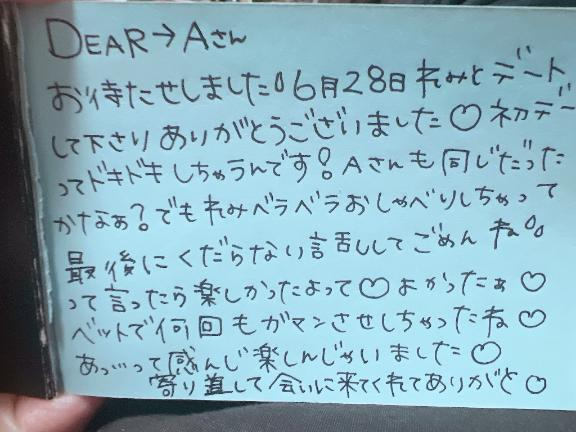 DEAR→Aさん
お待たせしました!6月28日れみとデート
して下さりありがとうございました♡初デー
ってドキドキしちゃうんです!Aさんも同じだった
かなぁ?でもれみベラベラおしゃべりしちゃって
最後にくだらない話ししてごめんね。
って言ったら楽しかったよって♡よかったぁ♡
ベットで何回もガマンさせしちゃったね♡
あっ…って感んじ楽しんじゃいました♡
寄り直して会いに来てくれてありがと♡